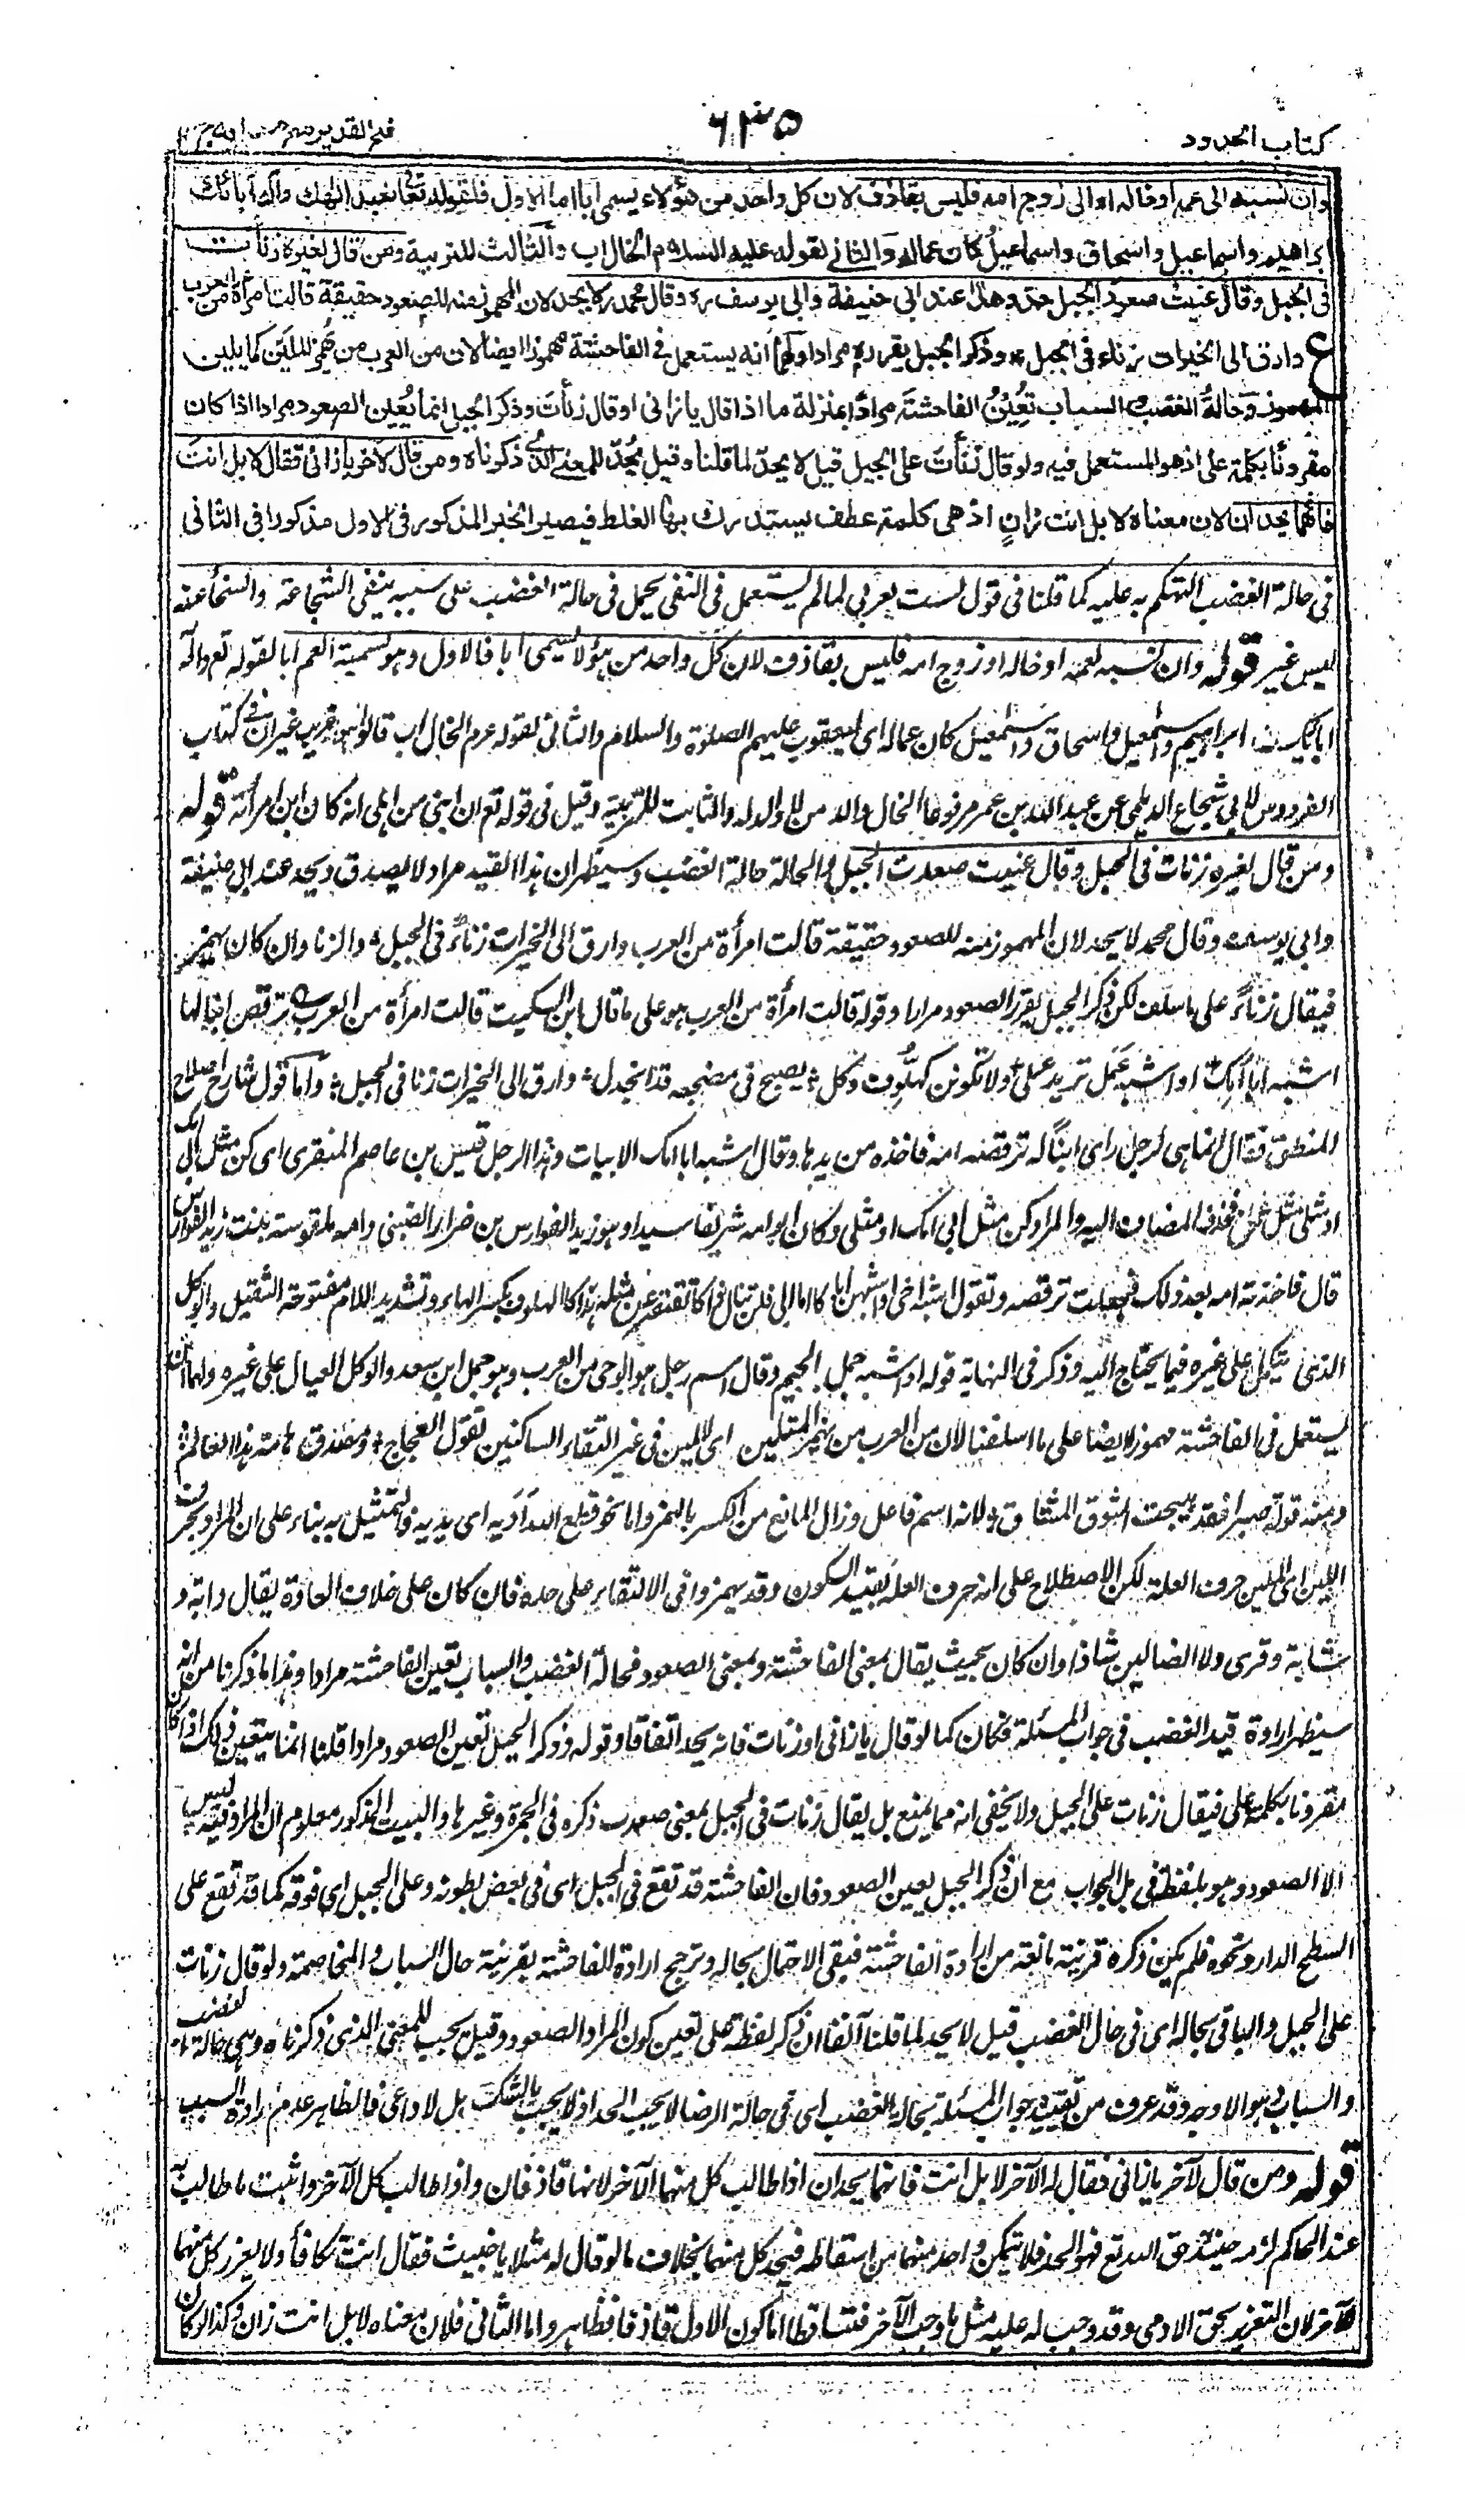 كتاب الحدود
٦٣٥
فتح القدير مع هدايه ج ٢
وان نسبه الى عمه او خاله او الى زوج امه فليس بقاذف لان كل واحد من هؤلاء يسمى ابا اما الاول فلقوله تعالى نعبد الهك واله ابائك
ابراهيم واسماعيل واسحاق واسماعيل كان عماله والثانى لقوله عليه السلام الخال اب والثالث للتربية ومن قال لغيره زنأت
فى الجبل وقال عنيت صعود الجبل حد وهذا عند ابى حنيفة وابى يوسف ره وقال محمد ره لا يحد لان المهموز منه للصعود حقيقة قالت امرأة من العرب
ع وارق الى الخيرات زناء فى الجبل * وذكر الجبل يقرره مرادا ولهما انه يستعمل فى الفاحشة مهموزا ايضا لان من العرب من يهمز الملين كما يلين
المهموز وحالة الغضب والسباب تعين الفاحشة مرادا بمنزلة ما اذا قال يا زانى او قال زنأت وذكر الجبل انما يعين الصعود مرادا اذا كان
مقرونا بكلمة على اذ هو المستعمل فيه ولو قال زنأت على الجبل قيل لا يحد لما قلنا وقيل يحد للمعنى الذى ذكرناه ومن قال لآخر يا زانى فقال لا بل انت
فانهما يحدان لان معناه لا بل انت زان اذ هى كلمة عطف يستدرك بها الغلط فيصير الخبر المذكور فى الاول مذكورا فى الثانى
فى حالة الغضب التهكم به عليه كما قلنا فى قول لست بعربى لما لم يستعمل فى النفى يحمل فى حالة الغضب على سببه بنفى الشجاعة والسخاء عنه
ليس غير قوله وان نسبه لعمه او خاله او زوج امه فليس بقاذف لان كل واحد من هؤلاء يسمى ابا فالاول وهو تسمية العم ابا لقوله تع واله
ابائك ابراهيم واسمعيل واسحاق واسمعيل كان عما له اى ليعقوب عليهم الصلوة والسلام والثانى لقوله عم الخال اب قالوا هو غريب غير ان فى كتاب
الفردوس لابى شجاع الديلمى عن عبد الله بن عمر مرفوعا الخال والد من لا والد له والثالث للتربية وقيل فى قوله تع ان ابنى من اهلى انه كان ابن امرأته قوله
ومن قال لغيره زنات فى الجبل وقال عنيت صعدت الجبل والحالة حالة الغضب وسيظهر ان هذا القيد مراد لا يصدق ويحد عند ابى حنيفة
وابى يوسف وقال محمد لا يحد لان المهموز منه للصعود حقيقة قالت امرأة من العرب وارق الى الخيرات زناء فى الجبل * والزنا وان كان يهمز
فيقال زناء على ما سلف لكن ذكر الجبل يقرر الصعود مرادا وقوله قالت امرأة من العرب هو على ما قال ابن السكيت قالت امرأة من العرب ترقص ابنا لها
اشبه ابا امك او اشبه عمل تريد عملى ولا تكونن كهلوف وكل * يصبح فى مضجعه قد انجدل * وارق الى الخيرات زنا فى الجبل * واما قول شارح اصلاح
المنطق فقال انما هى لرجل راى ابنا له ترقصه امه فاخذه من يدها وقال اشبه ابا امك الابيات وهذا الرجل قيس بن عاصم المنقرى اى كن مثل ابى امك
او مثلى مثل عملى فحذف المضاف اليه والمراد كن مثل ابى امك او مثلى وكان ابو امه شريفا سيدا وهو زيد الفوارس بن ضرار الضبى وامه منفوسة بنت زيد الفوارس
قال فاخذته امه بعد ذلك فجعلت ترقصه وتقول اشبه اخى او اشبهن اباكا اما ابى فلن تنال ذاكا تقصر عن مثله يداكا الهلوف بكسر الهاء وتشديد اللام مفتوحة الثقيل والوكل
الذى يتكل على غيره فيما يحتاج اليه وذكر فى النهاية قوله او اشبه جمل بالجيم وقال اسم رجل هو ابو حى من العرب وهو جمل ابن سعد والوكل العيال على غيره ولهما انه
يستعمل فى الفاحشة مهموزا ايضا على ما اسلفنا لان من العرب من يهمز الملين اى اللين فى غير التقاء الساكنين تقول العجاج * وخندق هامة هذا العالم *
ومنه قوله صبرا فقد هيجت شوق المشتاق * لانه اسم فاعل وزال المانع من الكسر بالهمز واما نحو قطع الله أديه اى يديه فالتمثيل به بناء على ان المراد بحرف
اللين اى الملين حرف العلة لكن الاصطلاح على انه حرف العلة بقيد السكون وقد يهمزوا فى الالتقاء على حده فان كان على خلاف العادة يقال دابة و
شابة وقرى ولا الضالين شاذا وان كان بحيث يقال بمعنى الفاحشة وبمعنى الصعود فحالة الغضب والسباب تعين الفاحشة مرادا وهذا ما ذكرنا من انه
سيظهر ارادة قيد الغضب فى جواب المسئلة فكان كما لو قال يا زانى او زنات فانه يحد اتفاقا وقوله وذكر الجبل تعين الصعود مرادا قلنا انما يتعين ذلك اذا كان
مقرونا بكلمة على فيقال زنات على الجبل ولا يخفى انه مما يمنع بل يقال زنات فى الجبل بمعنى صعدت ذكره فى الجمهرة وغيرها والبيت المذكور معلوم ان المراد فيه ليس
الا الصعود وهو بلفظة فى بل الجواب مع ان ذكر الجبل يعين الصعود فان الفاحشة قد تقع فى الجبل اى فى بعض بطونه وعلى الجبل اى فوقه كما قد تقع على
السطح الدار ونحوه فلم يكن ذكره قرينة مانعة من ارادة الفاحشة فبقى الاحتمال بحاله وترجح ارادة الفاحشة بقرينة حال السباب والمخاصمة ولو قال زنات
على الجبل والباقى بحاله اى فى حال الغضب قيل لا يحد لما قلنا آنفا ان ذكر لفظة على تعين كون المراد الصعود وقيل يجب للمعنى الذى ذكرناه وهى حالة الغضب
والسباب هو الاوجه وقد عرف من تقييده جواب المسئلة بحالة الغضب اى فى حالة الرضا لا يجب الحد اذ لا يجب بالشك بل لا داعى فالظاهر عدم ارادة السبب
قوله ومن قال لآخر يا زانى فقال له الآخر لا بل انت فانهما يحدان اذا طالب كل منهما الآخر لانهما قاذفان واذا طالب كل الآخر واثبت ما طالب به
عند الحاكم لزمه حينئذ حق الله تع فهو الحد فلا يتمكن واحد منهما من اسقاطه فيحد كل منهما بخلاف ما لو قال له مثلا يا خبيث فقال انت تكافأ ولا يعزر كل منهما
للآخر لان التعزير بحق الادمى وقد وجب له عليه مثل ما وجب الآخر فتساقطا اما كون الاول قاذفا فظاهر واما الثانى فلان معناه لا بل انت زان وكذا لو كان